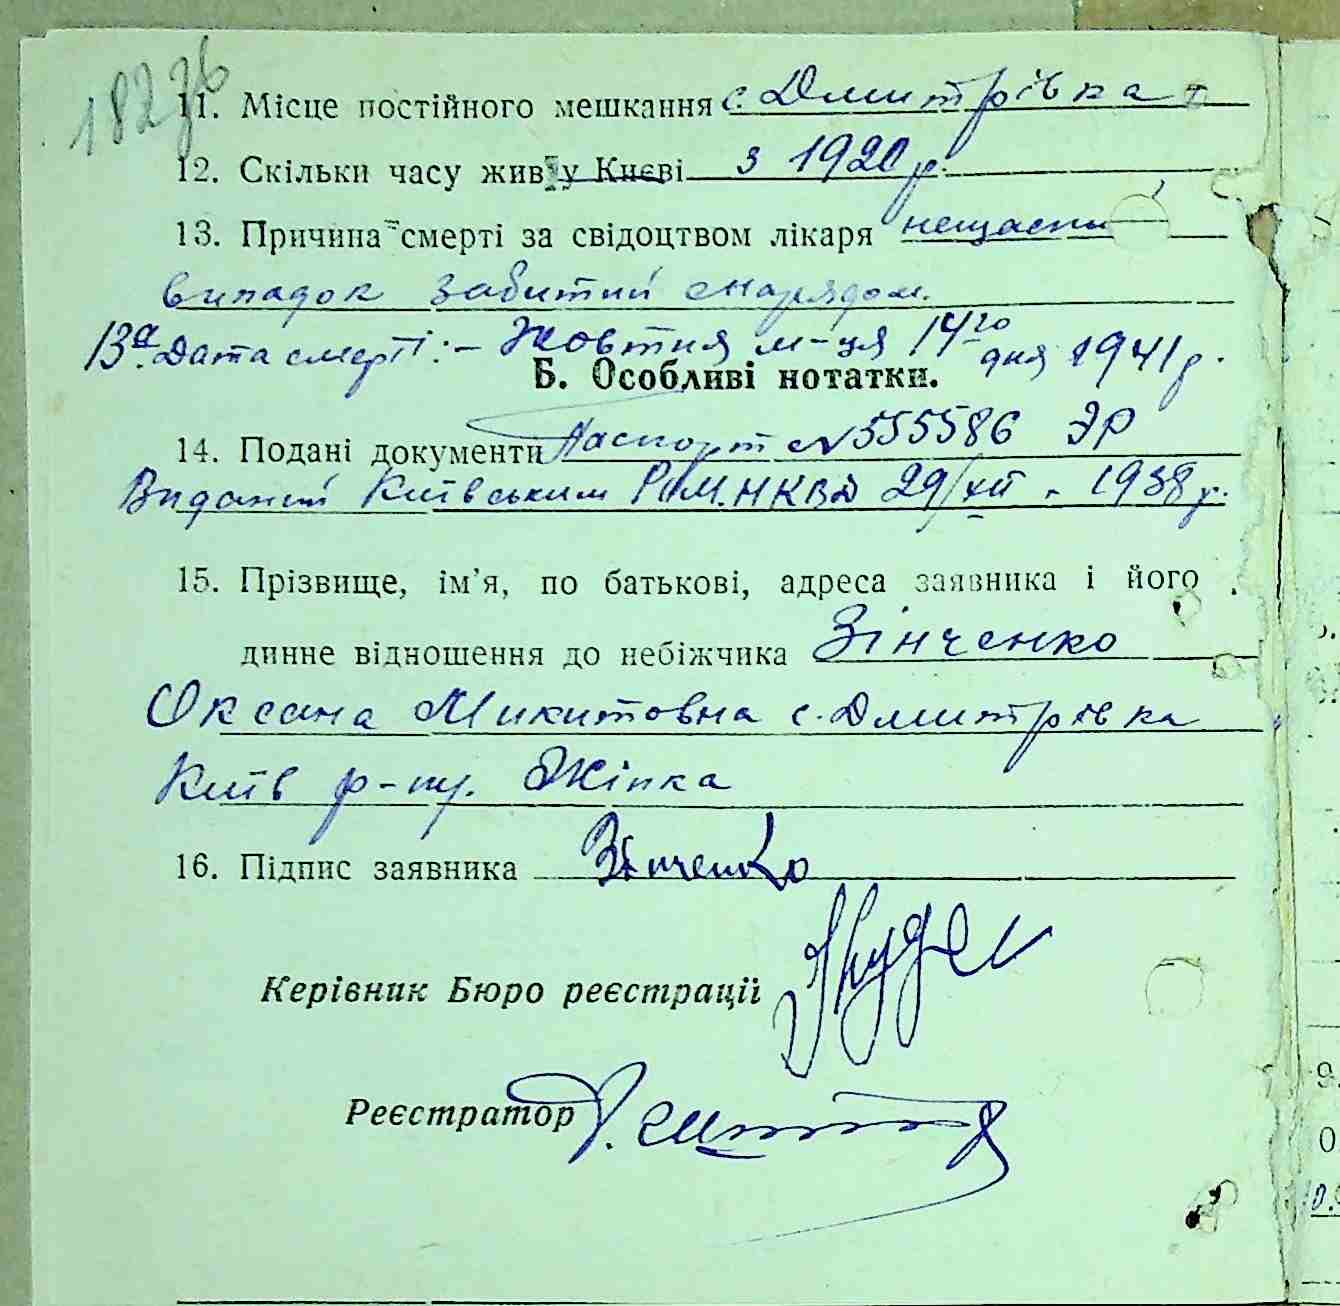 182
11. Місце постійного мешкання с. Дмитрівка
12. Скільки часу жив у Києві з 1920 р.
13. Причина смерті за свідоцтвом лікаря нещасни
випадок забитий снарядом.
13а. Дата смерті:- Жовтня м-ця 14го дня 1941 р.
Б. Особливі нотатки.
14. Подані документи Паспорт №555586 ЭР
Виданий Київським РОМ.НКВД 29/XII - 1938 р.
15. Прізвище, ім'я, по батькові, адреса заявника і його
динне відношення до небіжчика Зінченко
Оксана Микитовна с. Дмитрівка
Київ р-ну. Жінка
16. Підпис заявника Зінченко
Керівник Бюро реєстрації
Реєстратор